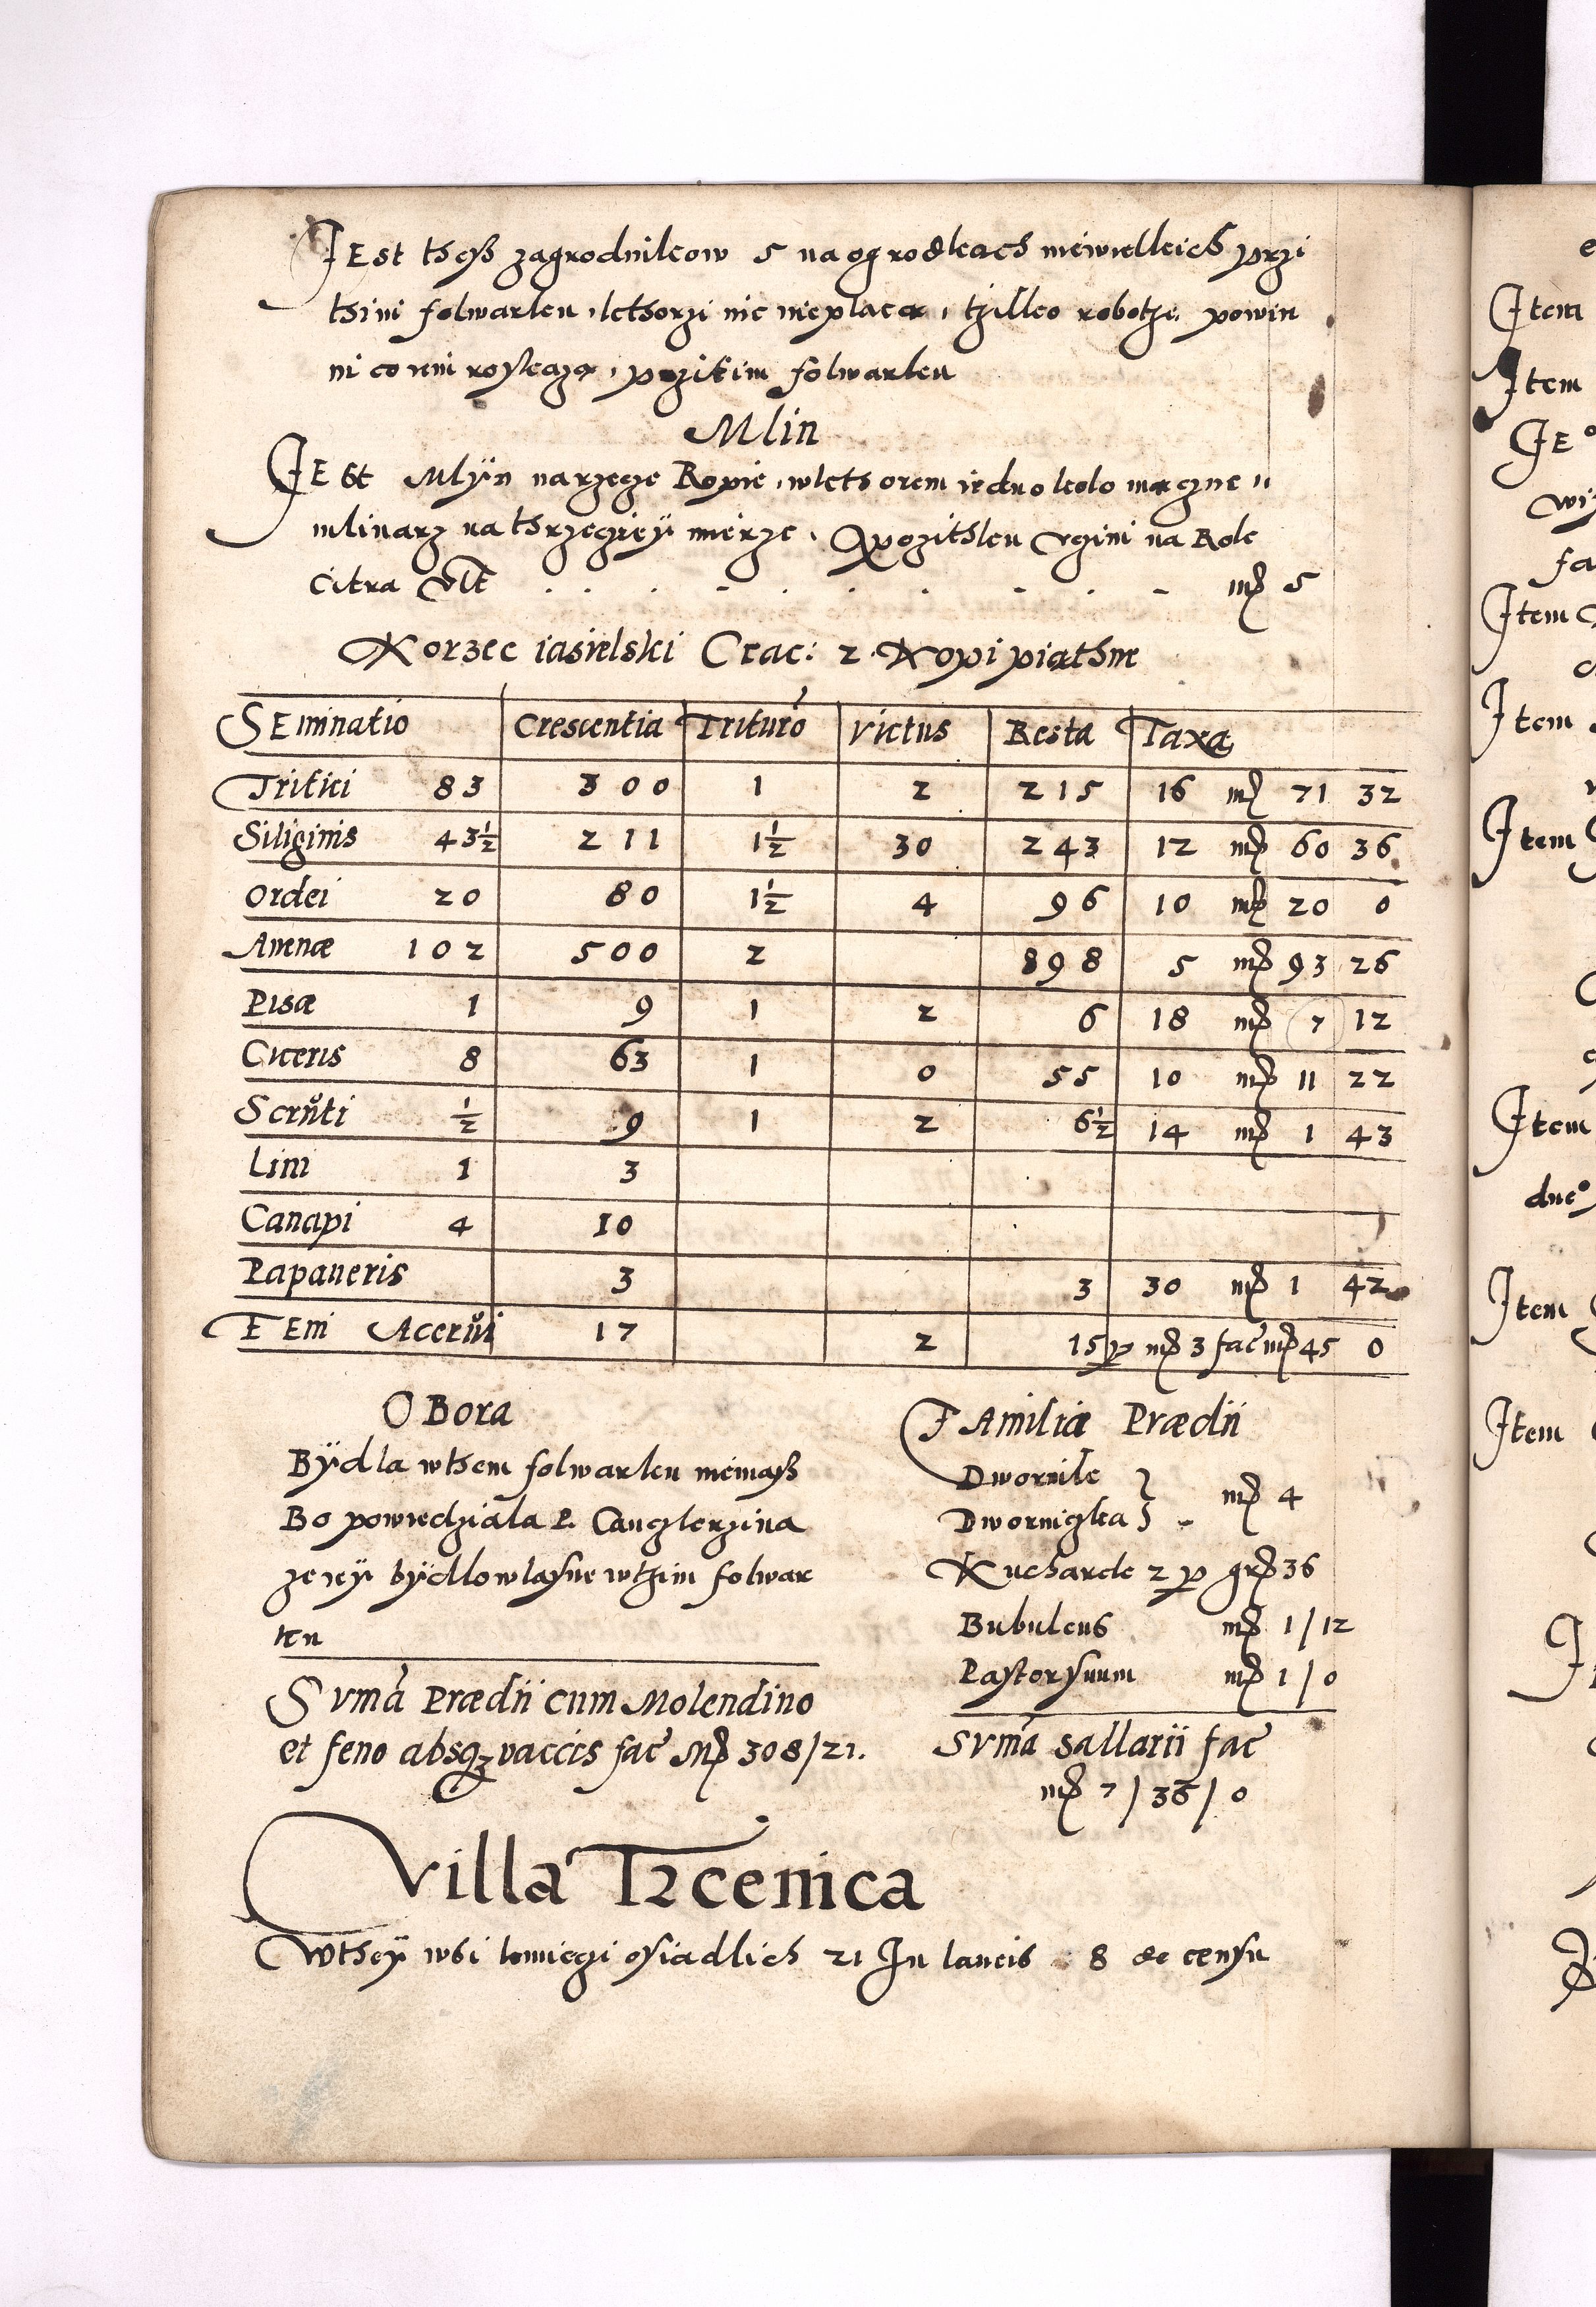 JEst thesz zagrodnikow 5 na ogrodkach niewielkich przi
thim folwarku, kthorzi nic nieplacą, tzilko robothe powin
ni co im roskazą, przitim folwarku
Mlin
JEst Mlÿn narzecze Ropie, wkthorem iedno kolo mączne
mlinarz na thrzecziey mierze. Pozithku czini na Rok
Citra Vlt . . . . . . . . . . mρ 5
Korzec iasielski Crac: 2 Kopi piąthne
SEminatio Crescentia Trituro Victus Resta Taxa
Tritici 83 300 1 2 215 16 mρ 71 32
Siliginis 43½ 211 1½ 30 243 12 mρ 60 36
Ordei 20 80 1½ 4 96 10 mρ 20 0
Auenæ 102 500 2 898 5 mρ 93 26
Pisæ 1 9 1 2 6 18 mρ 7 12
Ciceris 8 63 1 0 55 10 mρ 11 22
Scruti ½ 9 1 2 6½ 14 mρ 1 43
Lini 1 3
Canapi 4 10
Papaueris 3 3 30 mρ 1 42
FEni Acerui 17 2 15 p mρ 3 fac mρ 45 0
OBora
Bÿdla wthem folwarku niemasz
Bo powiedziala P. Canczlerzina
ze iey bÿdlo wlasne wtzim folwar
ku
SVma Prædii cum Molendino
et feno absqz vaccis fac Mρ 308/21.
FAmilia Prædii
Dwornik
Dworniczka } - mρ 4
Kucharek 2 p grρ 36
Bubulcus mρ 1/12
Pastor suum mρ 1/0
SVma sallarii fac
mρ 7/36/0
Villa Trcenica
Wthey wsi kmieczi osiadlich 21 In laneis 8 de censu